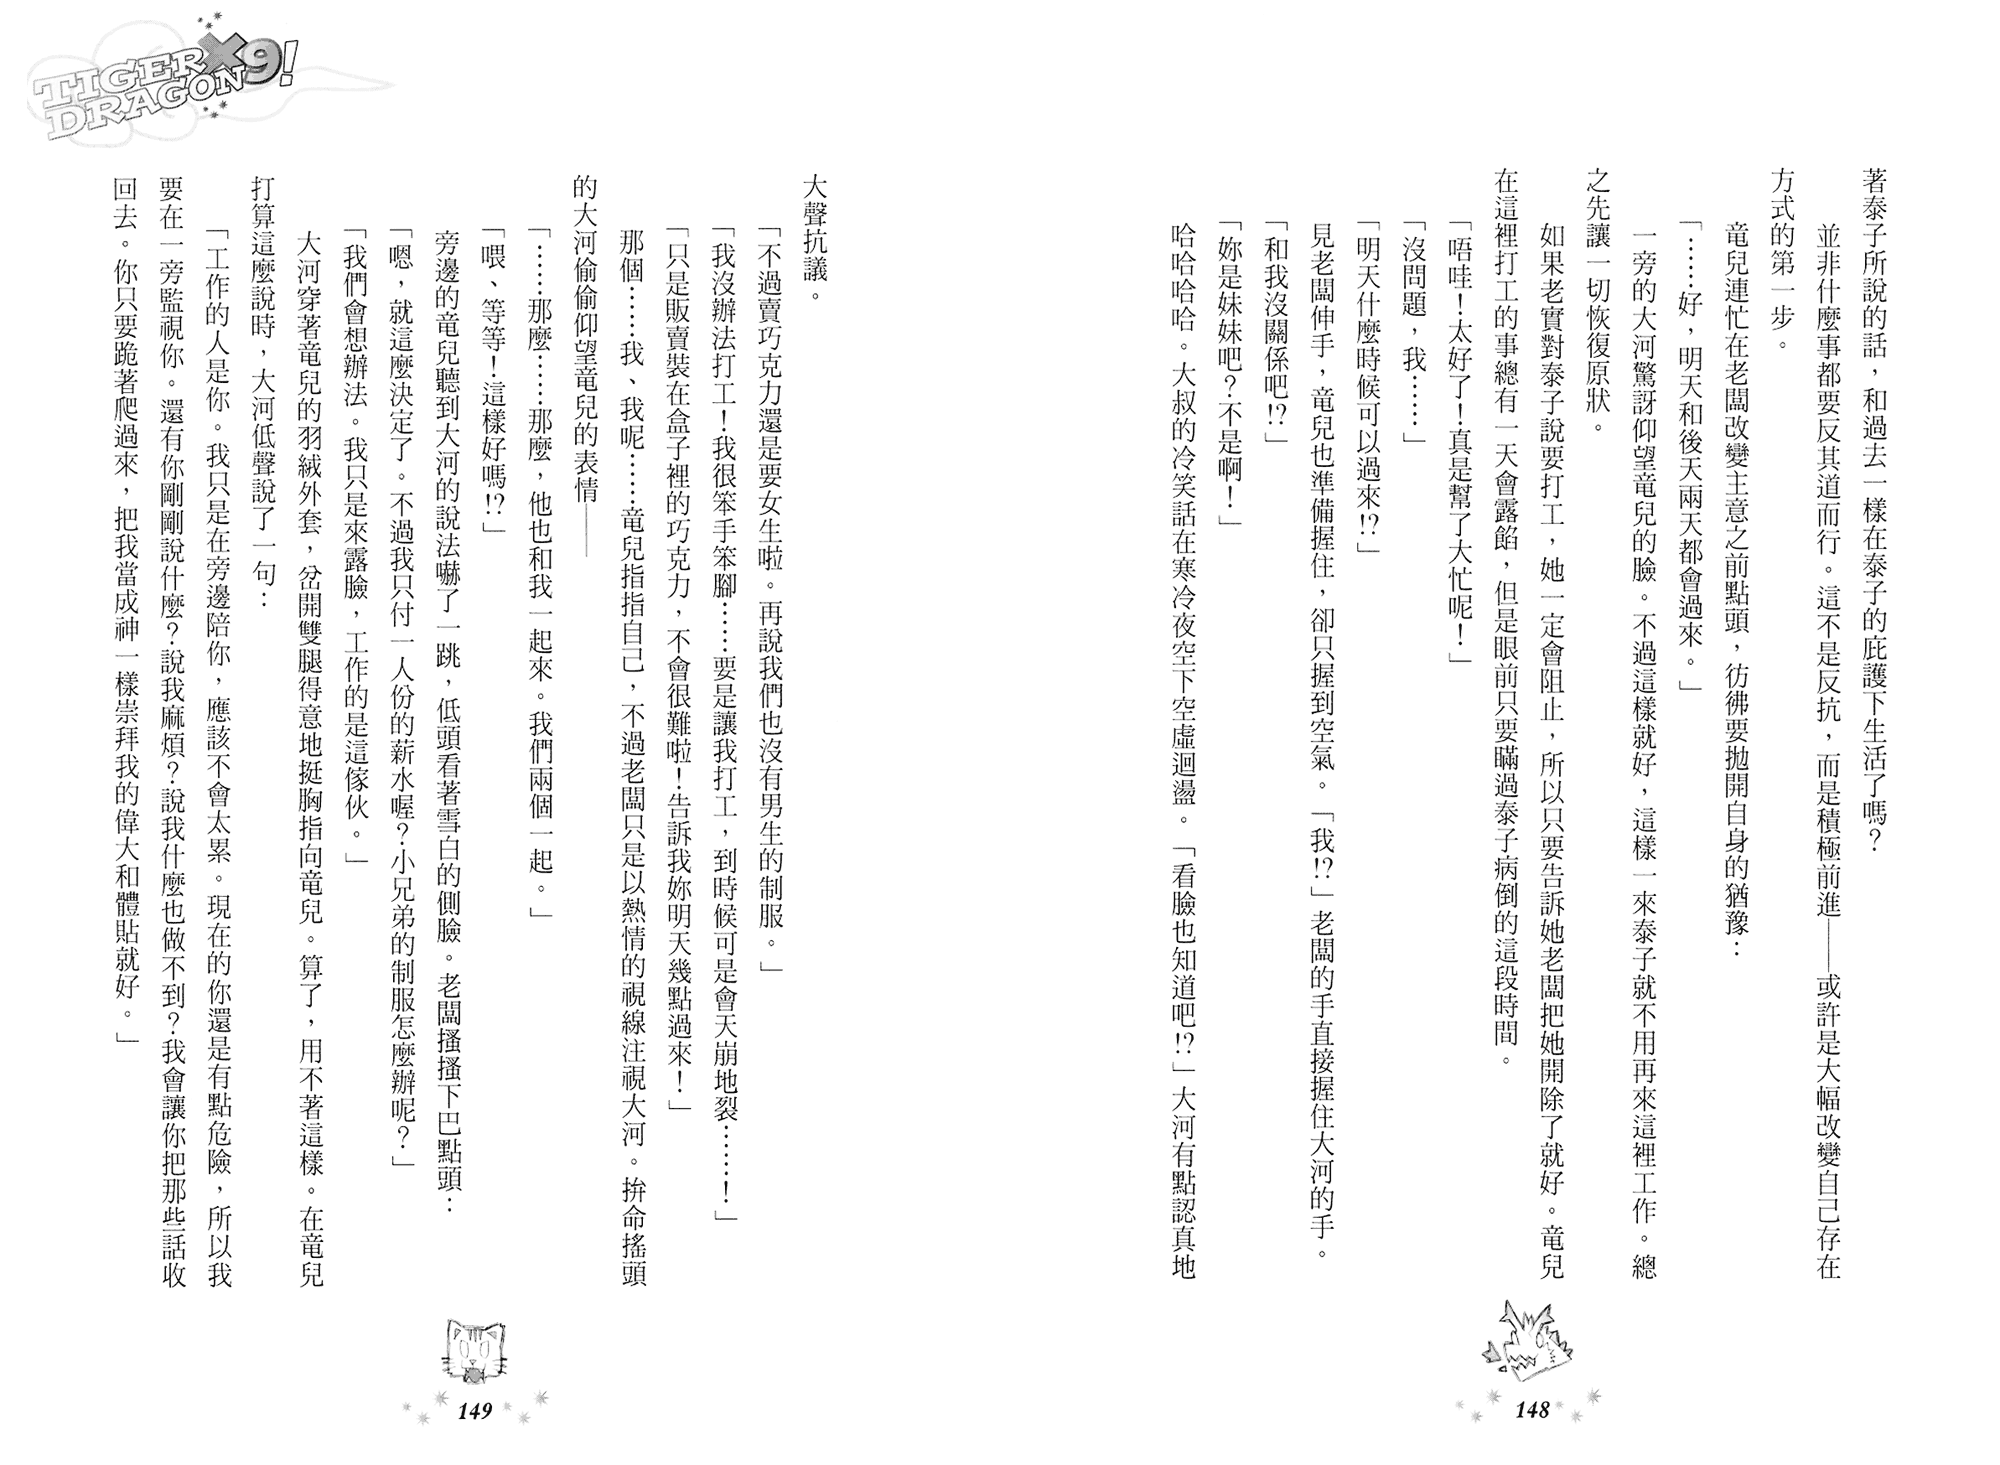 著泰子所說的話，和過去一樣在泰子的庇護下生活了嗎？
並非什麼事都要反其道而行。這不是反抗，而是積極前進——或許是大幅改變自己存在
方式的第一步。
竜兒連忙在老闆改變主意之前點頭，彷彿要拋開自身的猶豫：
「……好，明天和後天兩天都會過來。」
一旁的大河驚訝仰望竜兒的臉。不過這樣就好，這樣一來泰子就不用再來這裡工作。總
之先讓一切恢復原狀。
如果老實對泰子說要打工，她一定會阻止，所以只要告訴她老闆把她開除了就好。竜兒
在這裡打工的事總有一天會露餡，但是眼前只要瞞過泰子病倒的這段時間。
「唔哇！太好了！真是幫了大忙呢！」
「沒問題，我……」
「明天什麼時候可以過來!?」
見老闆伸手，竜兒也準備握住，卻只握到空氣。「我!?」老闆的手直接握住大河的手。
「和我沒關係吧!?」
「妳是妹妹吧？不是啊！」
哈哈哈哈。大叔的冷笑話在寒冷夜空下空虛迴盪。「看臉也知道吧!?」大河有點認真地
148
TIGER×DRAGON9!
大聲抗議。
「不過賣巧克力還是要女生啦。再說我們也沒有男生的制服。」
「我沒辦法打工！我很笨手笨腳……要是讓我打工，到時候可是會天崩地裂……！」
「只是販賣裝在盒子裡的巧克力，不會很難啦！告訴我妳明天幾點過來！」
那個……我、我呢……竜兒指指自己，不過老闆只是以熱情的視線注視大河。拚命搖頭
的大河偷偷仰望竜兒的表情——
「……那麼……那麼，他也和我一起來。我們兩個一起。」
「喂、等等！這樣好嗎!?」
旁邊的竜兒聽到大河的說法嚇了一跳，低頭看著雪白的側臉。老闆搔搔下巴點頭：
「嗯，就這麼決定了。不過我只付一人份的薪水喔？小兄弟的制服怎麼辦呢？」
「我們會想辦法。我只是來露臉，工作的是這傢伙。」
大河穿著竜兒的羽絨外套，岔開雙腿得意地挺胸指向竜兒。算了，用不著這樣。在竜兒
打算這麼說時，大河低聲說了一句：
「工作的人是你。我只是在旁邊陪你，應該不會太累。現在的你還是有點危險，所以我
要在一旁監視你。還有你剛剛說什麼？說我麻煩？說我什麼也做不到？我會讓你把那些話收
回去。你只要跪著爬過來，把我當成神一樣崇拜我的偉大和體貼就好。」
149